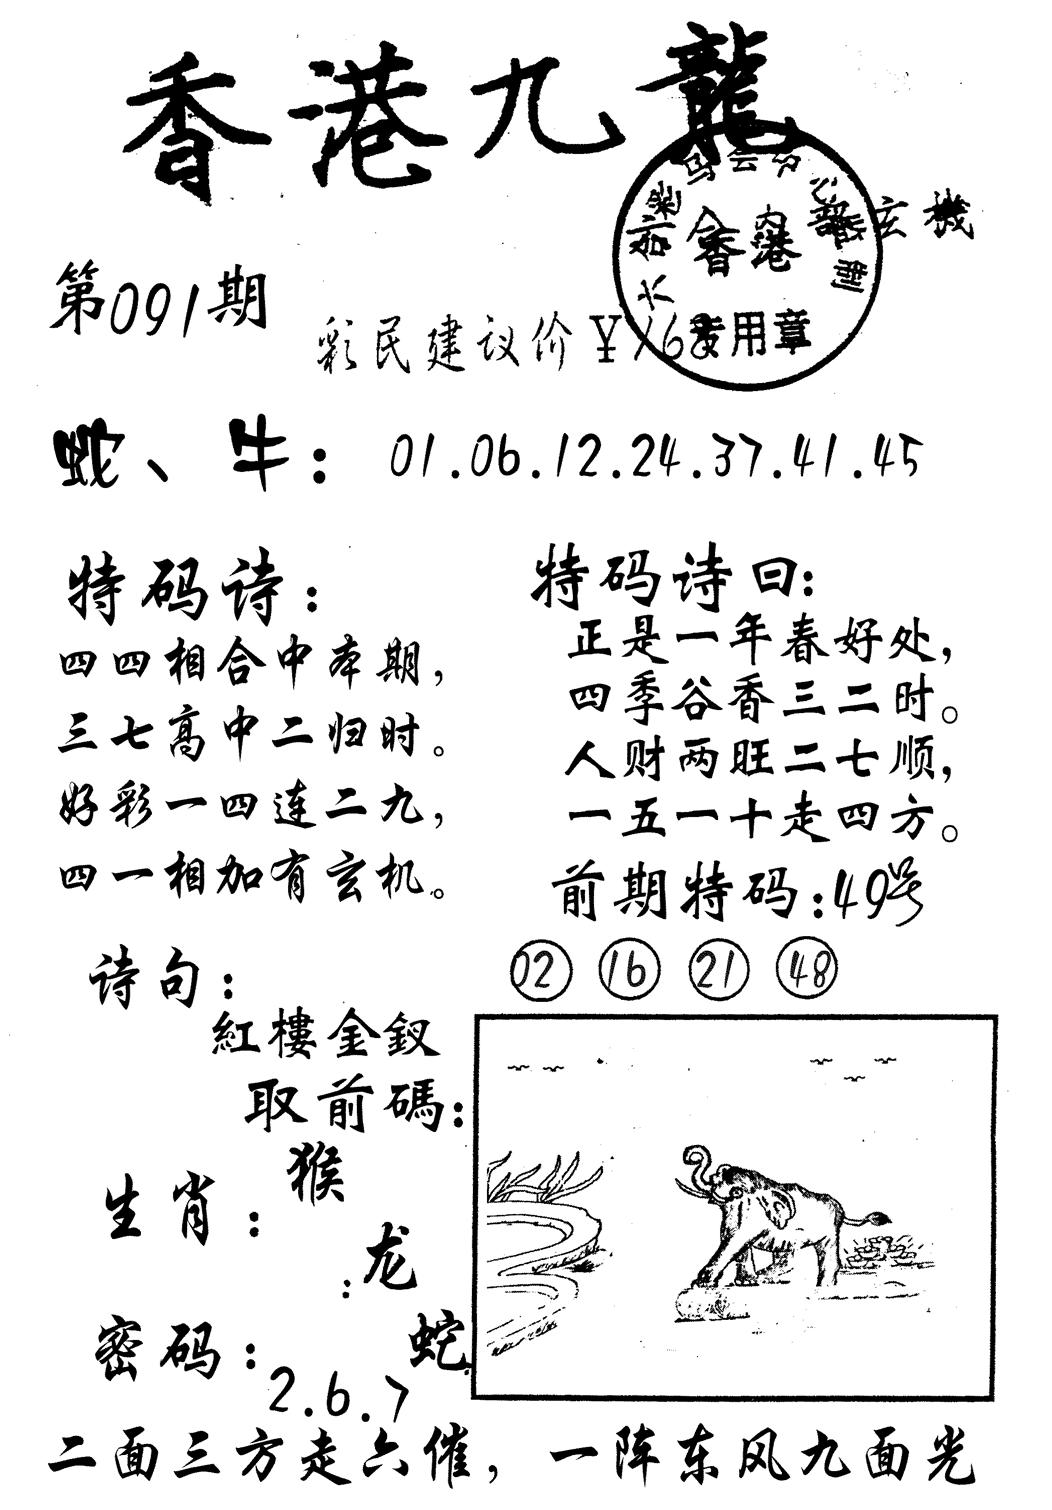 香港九龍
香港 玄機
第091期
彩民建议价¥168
专用章
蛇、牛：01.06.12.24.37.41.45
特码诗：
四四相合中本期，
三七高中二归时。
好彩一四连二九，
四一相加有玄机。
特码诗曰：
正是一年春好处，
四季谷香三二时。
人财两旺二七顺，
一五一十走四方。
前期特码：49号
02 16 21 48
诗句：
紅樓金釵
取前碼：
生肖：
猴
：龙
蛇
密码：
2.6.7
二面三方走六催，一阵东风九面光